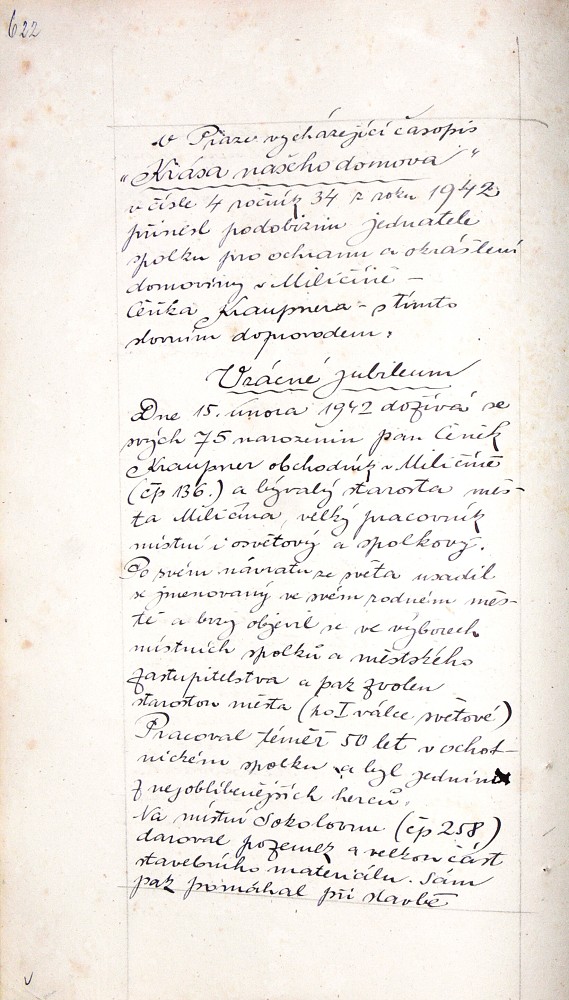 622
v Praze vycházející časopis
"Krása našeho domova"
v čísle 4 ročník 34 z roku 1942
přinesl podobiznu jednatele
spolku pro ochranu a okrášlení
domoviny v Miličíně –
Čeňka Kraupnera – s tímto
slovním doprovodem:
Vzácné jubileum
Dne 15. února 1942 dožívá se
svých 75 narozenin pan Čeněk
Kraupner obchodník v Miličíně
(čp 136.) a bývalý starosta měs-
ta Miličína, velký pracovník
místní i osvětový a spolkový.
Po svém návratu ze světa usadil
se jmenovaný ve svém rodném měs-
tě a brzy objevil se ve výborech
místních spolků a městského
zastupitelstva a pak zvolen
starostou města (po I válce světové)
Pracoval téměř 50 let v ochot-
nickém spolku a byl jedním
z nejoblíbenějších herců.
Na místní Sokolovnu (čp 258)
daroval pozemek a velkou část
stavebního materiálu. Sám
pak pomáhal při stavbě
v